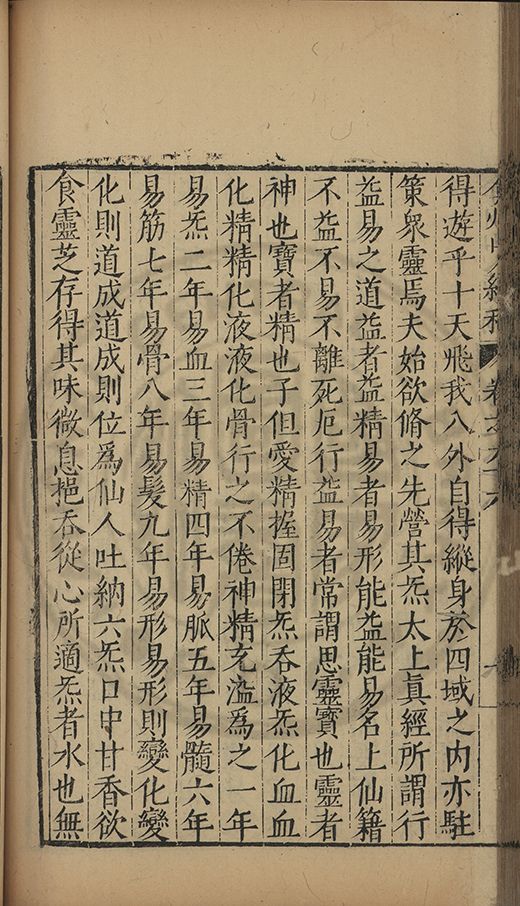 得遊乎十天飛我八外自得縱身於四域之内亦駐
策衆靈焉夫始欲脩之先營其炁太上眞經所謂行
益易之道益者益精易者易形能益能易名上仙籍
不益不易不離死厄行益易者常謂思靈寶也靈者
神也寶者精也子但愛精握固閉炁吞液炁化血血
化精精化液液化骨行之不倦神精充溢為之一年
易炁二年易血三年易精四年易脈五年易髓六年
易筋七年易骨八年易髮九年易形易形則變化變
化則道成道成則位為仙人吐納六炁口中甘香欲
食靈芝存得其味微息挹吞從心所適炁者水也無